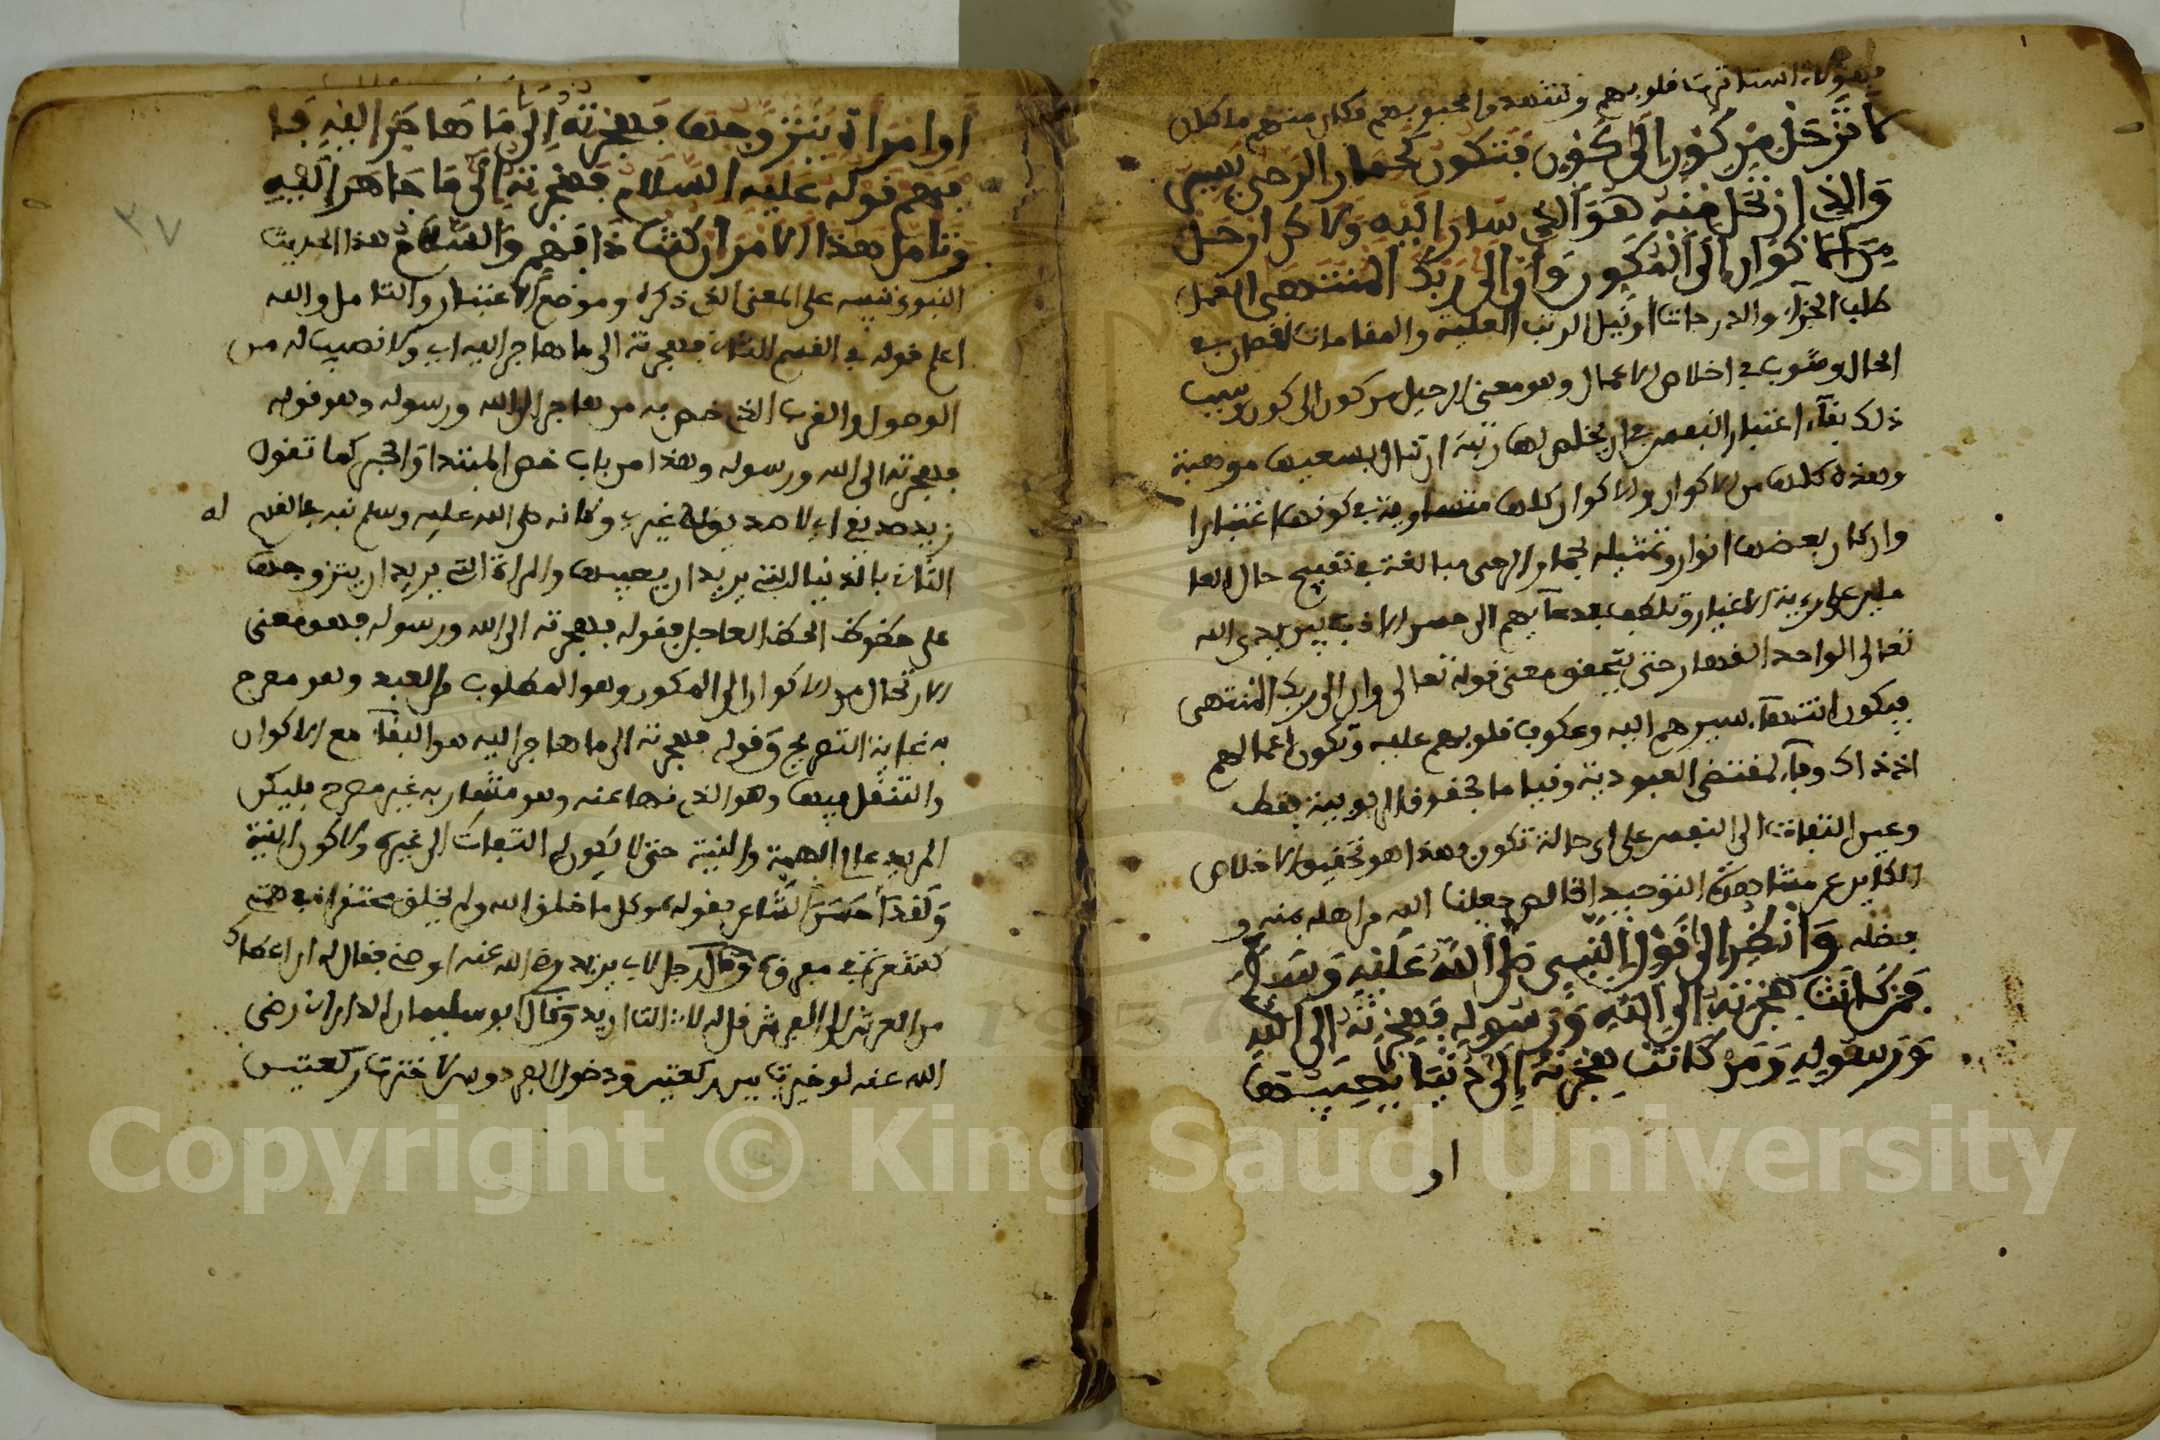 فهؤلاء استنارت قلوبهم وشهدوا محبوبهم فكان منهم ما كان
لا ترحل من كون إلى كون فتكون كحمار الرحى يسير
والذي ارتحل منه هو الذي سار إليه ولاكن ارحل
من الاكوان إلى المكون وأن إلى ربك المنتهى العمل
طلب الجزآء والدرجات او نيل الرتب العلية والمقامات نقصان في
الحال وشوب في اخلاص الاعمال وهو معنى الرحيل من كون الى كون وسبب
ذلك بقآء اعتبار النفس في ان يحصل لها رتبة او تنال بسعيها موهبة
وهذه كلها من الاكوان والاكوان كلها متساوية في كونها اغيارا
وان كان بعضها انوارا وتمثيله بحمار الرحى مبالغة في تقبيح حال العا
ملين على رؤية الاغيار وتلطف بدعآيهم الى حسن الادب بين يدي الله
تعالى الواحد القهار حتى يتحقق معنى قوله تعالى وان الى ربك المنتهى
فيكون انتهآء سيرهم اليه وعكوف قلوبهم عليه وتكون اعمالهم
اذ ذاك وفآء لمقتضى العبودية وقياما بحقوق الربوبية فقط
وعين التفات الى النفس على اي حالة تكون وهذا هو تحقيق الاخلاص
الكاين عن مشاهدة التوحيد الخالص جعلنا الله من اهله بمنه و
فضله وانظر الى قول النبي صلى الله عليه وسلم
فمن كانت هجرته الى الله ورسوله فهجرته الى الله
ورسوله ومن كانت هجرته إلى دنيا يصيبها
او
او امرأة يتزوجها فهجرته إلى ما هاجر اليه فا
فهم قوله عليه السلام فهجرته الى ما هاجر إليه
وتامل هذا الامر ان كنت ذا فهم والسلام هذا الحديث
النبوي تنبيه على المعنى الذي ذكره وموضع الاعتبار والتامل والله
اعلم قوله في القسم الثاني فهجرته الى ما هاجر اليه اي ولا نصيب له من
الوصول والقرب الذي خص به من هاجر الى الله ورسوله وهو قوله
فهجرته الى الله ورسوله وهذا من باب حصر المبتدا في الخبر كما تقول
زيد صديقي اي لا صديق لي غيره وكانه صلى الله عليه وسلم نبه بالقسم
له
الثاني بالدنيا التي يريد ان يصيبها والمراة التي يريد ان يتزوجها
على حظوظ الحظ العاجل فقوله فهجرته الى الله ورسوله فهو معنى
الارتحال من الاكوان الى المكون وهو المطلوب من العبد وهو مصرح
به غاية التصريح وقوله فهجرته الى ما هاجر اليه هو البقآء مع الاكوان
والتنقل فيها وهو الذي نهى عنه وهو مشار به غير مصرح فليكن
المريد عالي الهمة والنية حتى لا يكون له التفات الى غير ولا كون البتة
ولقد احسن الشاعر بقوله وكل ما خلق الله ولم يخلق محتقر في همتي
كشعرة في مفرقي وقال رجل لابي يزيد رضي الله عنه اوصني فقال له ان اعطاك
من العرش الى الفرش فقل له لا انت اريد وقال ابو سليمان الداراني رضي
الله عنه لو خيرت بين ركعتين ودخول الفردوس لاخترت ركعتين
٣٧
Copyright © King Saud University
1957